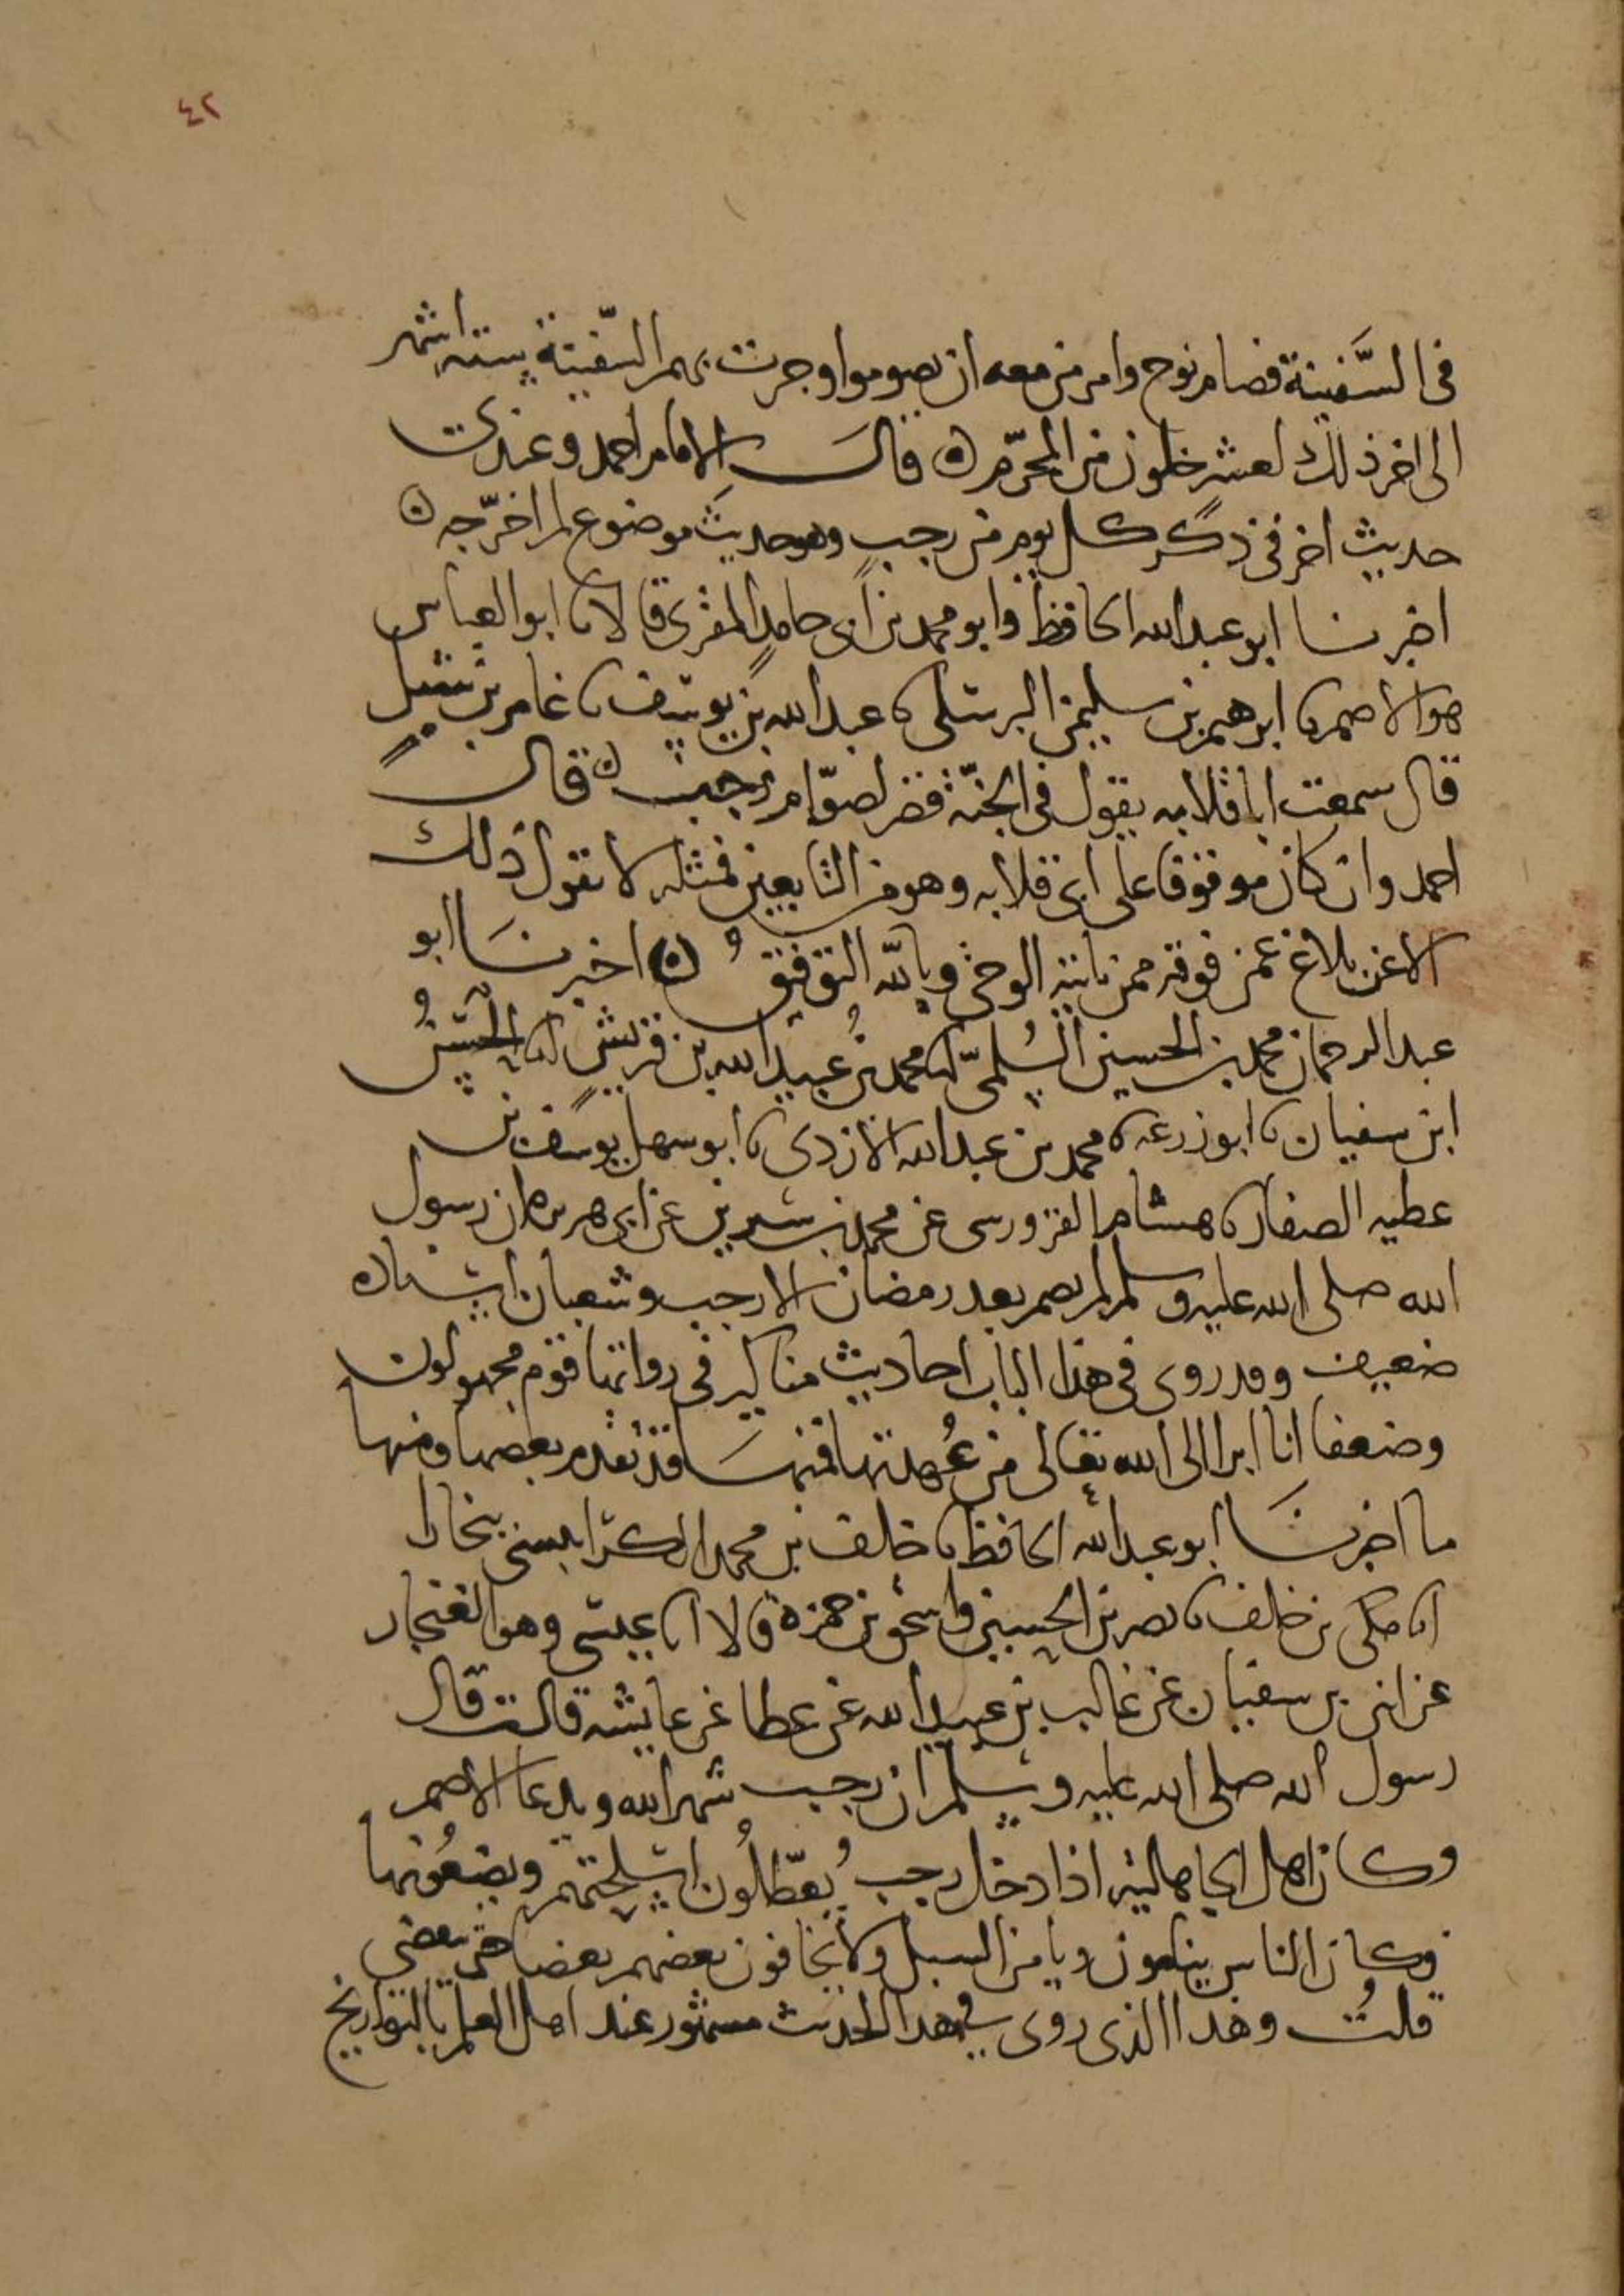 ٤٢
في السَّفينة فصام نوح وامر من معه ان يصوموا وجرت بهم السّفينة ستة اشهر
الى اخر ذلك لعشر خلون من المحرّم ٥ قال الامام احمد وعندي
حديث اخر في ذكر كل يوم من رجب وهو حديث موضوع لم اخرّجه ٥
اخبرنا ابو عبد الله الحافظ وابو محمد بن ابي حامد المقرى قالا نا ابو العباس
هو الاصم نا ابرهيم بن سليمن البرسلي نا عبد الله بن يوسف نا عامر بن شبل
قال سمعت ابا قلابه يقول في الجنّة قصر لصوّام رجب ٥ قال
احمد وان كان موقوفا على ابي قلابه وهو من التابعين فمثله لا يقول ذلك
الا عن بلاغ عمن فوقه ممن ياتيه الوحي وبالله التوفيق ٥ اخبرنا ابو
عبد الرحمان محمد بن الحسين السُلمىّ انا محمد بن عبيد الله بن قريش انا الحسن
ابن سفيان نا ابو زرعه نا محمد بن عبد الله الازدي نا ابو سهل يوسف بن
عطيه الصفار نا هشام القردوسي عن محمد بن سيرين عن ابي هريره ان رسول
الله صلى الله عليه وسلم لم يصم بعد رمضان الا رجب وشعبان اسناده
ضعيف وقد روي في هذا الباب احاديث مناكير في رواتها قوم مجهولون
وضعفا انا ابرا الى الله تعالى من عُهدتها فمنها قد تقدم بعضها ومنها
ما اخبرنا ابو عبد الله الحافظ نا خلف بن محمد الكرابيسي ببخارا
انا مكي بن خلف نا نصر بن الحسين واسحق بن حمزة قالا انا عيسى وهو الغنجار
عن ابي بن سفيان عن غالب بن عبيد الله عن عطا عن عايشه قالت قال
رسول الله صلى الله عليه وسلم ان رجب شهر الله ويدعا الاصم
وكان اهل الجاهلية اذا دخل رجب يُعطّلُون اسلحتهم ويضعُونها
وكان الناس ينامون ويامن السبل ولا يخافون بعضهم بعضا حتى ينقضي
قلتُ وهذا الذي روي في هذا الحديث مشهور عند اهل العلم بالتواريخ